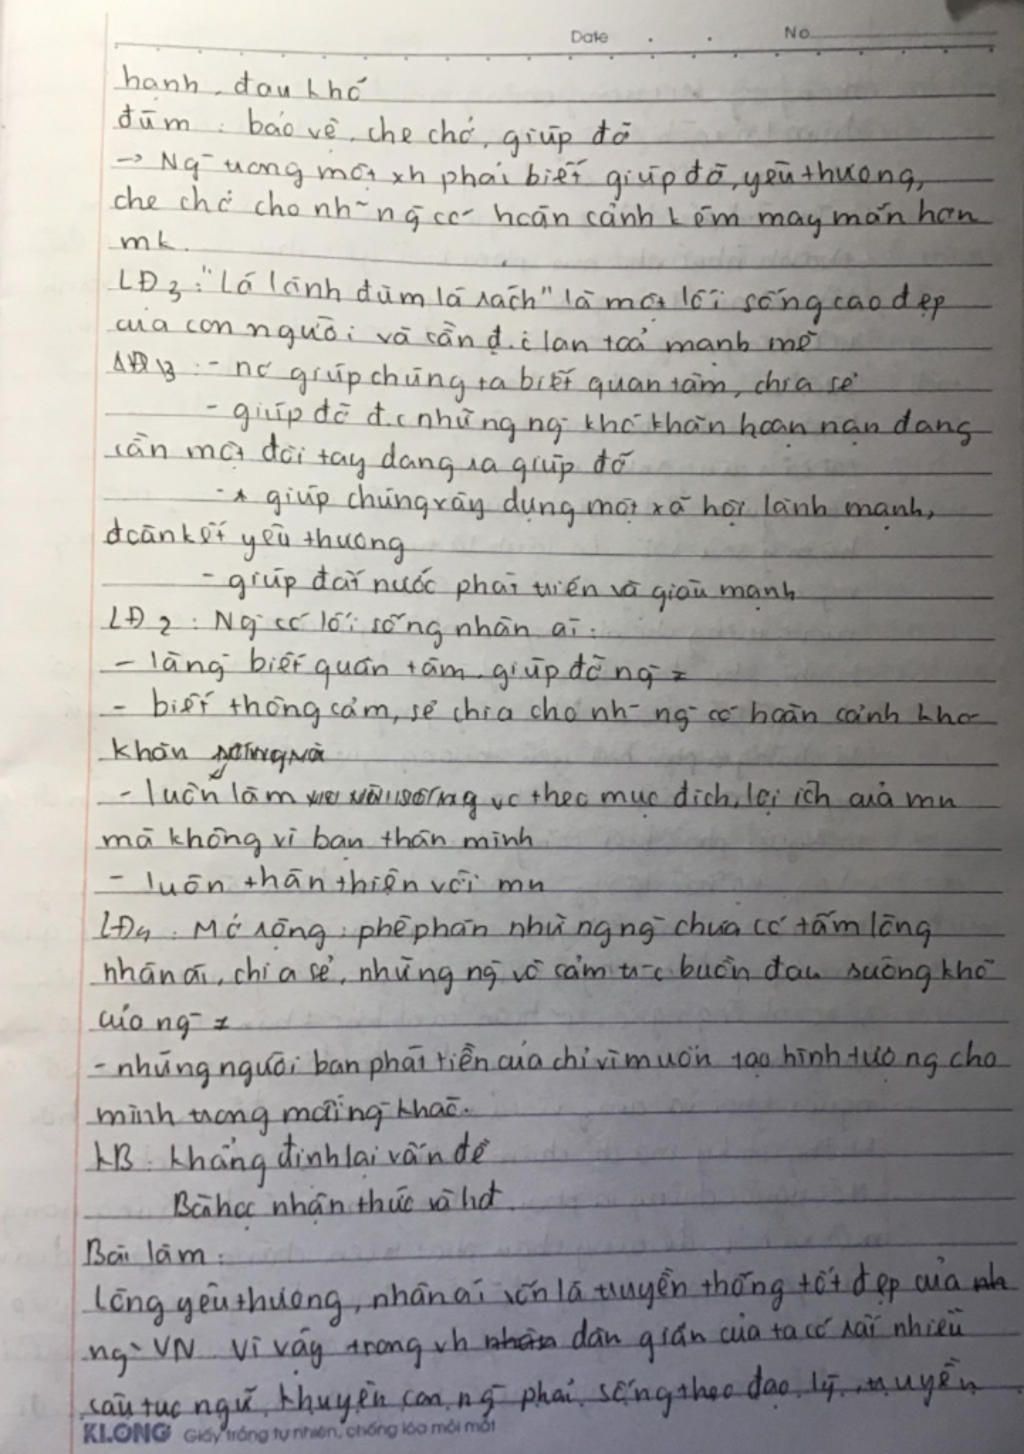 Date . . No
hạnh, đau khổ
đùm : bảo vệ, che chở, giúp đỡ
→ Ng trong một xh phải biết giúp đỡ, yêu thương,
che chở cho nh~ng có hoàn cảnh kém may mắn hơn
mk.
LĐ3 : "Lá lành đùm lá rách" là một lối sống cao đẹp
của con người và cần đ.c lan toả mạnh mẽ
- nó giúp chúng ta biết quan tâm, chia sẻ
- giúp đỡ đ.c những ng khó khăn hoạn nạn đang
cần một đôi tay dang ra giúp đỡ
- giúp chúng xây dựng một xã hội lành mạnh,
đoàn kết yêu thương
- giúp đất nước phát triển và giàu mạnh
LĐ2 : Ng có lối sống nhân ái :
- là ng biết quan tâm, giúp đỡ ng ≠
- biết thông cảm, sẻ chia cho nh~ ng có hoàn cảnh khó
khăn
- luôn làm vc theo mục đích, lợi ích của mn
mà không vì bản thân mình
- luôn thân thiện với mn
LĐ4 : Mở rộng : phê phán những ng chưa có tấm lòng
nhân ái, chia sẻ, những ng vô cảm tr~c buồn đau sướng khổ
của ng ≠
- những người ban phát tiền của chỉ vì muốn tạo hình tượng cho
mình trong mắt ng khác.
KB : Khẳng định lại vấn đề
Bài học nhận thức và hđ.
Bài làm :
Lòng yêu thương, nhân ái vốn là truyền thống tốt đẹp của
ng VN. Vì vậy trong vh dân gian của ta có rất nhiều
câu tục ngữ khuyên con ng phải sống theo đạo lý, truyền
KLONG Giấy trắng tự nhiên, chống lóa mỏi mắt